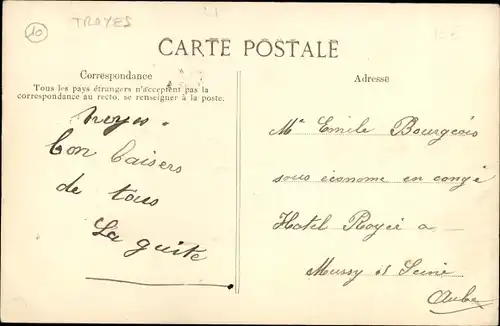 10
TROYES
CARTE POSTALE
Correspondance
Tous les pays étrangers n'acceptent pas la
correspondance au recto, se renseigner à la poste.
Troyes.
bon baisers
de tous
La guite
Adresse
Mr Emile Bourgeois
sous économe en congé
Hotel Royer a
Mussy s Seine
Aube